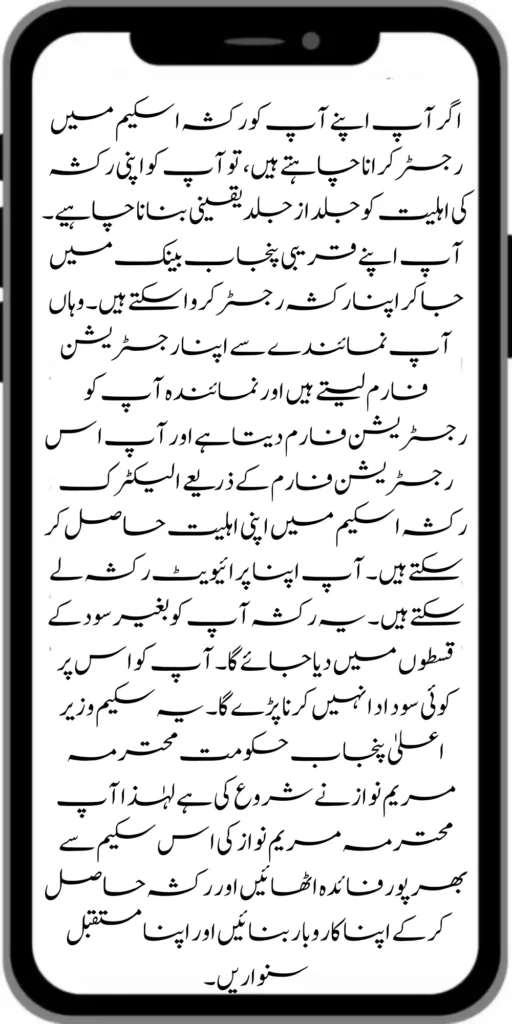 اگر آپ اپنے آپ کو رکشہ اسکیم میں
رجسٹر کرانا چاہتے ہیں، تو آپ کو اپنی رکشہ
کی اہلیت کو جلد از جلد یقینی بنانا چاہیے۔
آپ اپنے قریبی پنجاب بینک میں
جا کر اپنا رکشہ رجسٹر کروا سکتے ہیں۔ وہاں
آپ نمائندے سے اپنا رجسٹریشن
فارم لیتے ہیں اور نمائندہ آپ کو
رجسٹریشن فارم دیتا ہے اور آپ اس
رجسٹریشن فارم کے ذریعے الیکٹرک
رکشہ اسکیم میں اپنی اہلیت حاصل کر
سکتے ہیں۔ آپ اپنا پرائیویٹ رکشہ لے
سکتے ہیں۔ یہ رکشہ آپ کو بغیر سود کے
قسطوں میں دیا جائے گا۔ آپ کو اس پر
کوئی سود ادا نہیں کرنا پڑے گا۔ یہ سکیم وزیر
اعلیٰ پنجاب حکومت محترمہ
مریم نواز نے شروع کی ہے لہٰذا آپ
محترمہ مریم نواز کی اس سکیم سے
بھرپور فائدہ اٹھائیں اور رکشہ حاصل
کر کے اپنا کاروبار بنائیں اور اپنا مستقبل
سنواریں۔